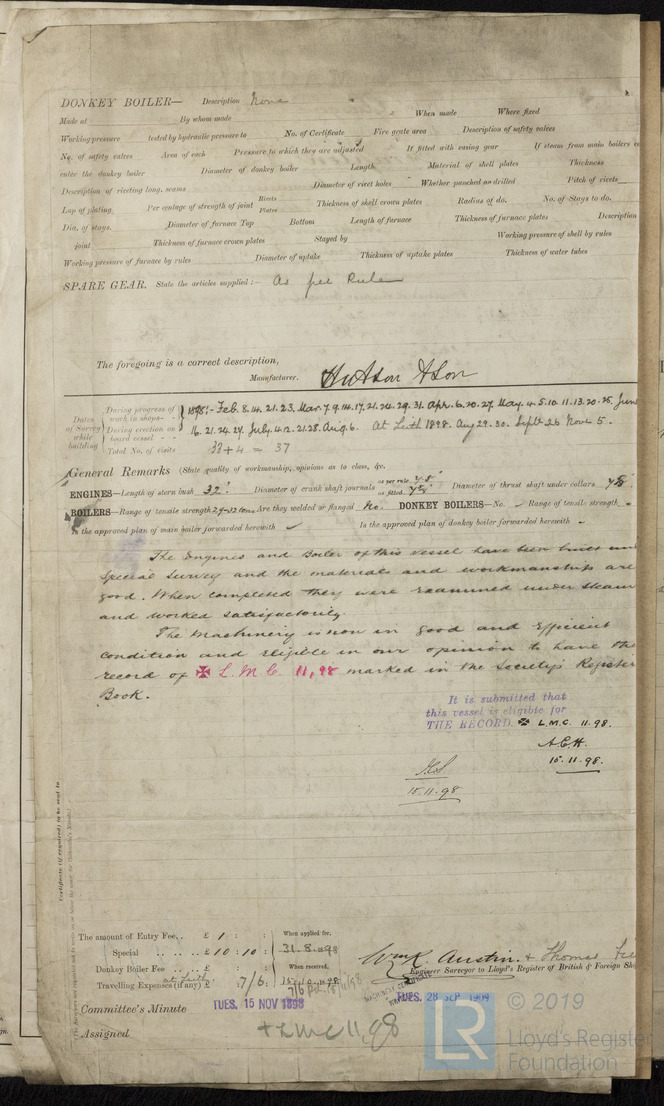 DONKEY BOILER— Description None
Made at By whom made When made Where fixed
Working pressure tested by hydraulic pressure to No. of Certificate Fire grate area Description of safety valves
No. of safety valves Area of each Pressure to which they are adjusted If fitted with easing gear If steam from main boilers c
enter the donkey boiler Diameter of donkey boiler Length Material of shell plates Thickness
Description of riveting long. seams Diameter of rivet holes Whether punched or drilled Pitch of rivets
Lap of plating Per centage of strength of joint Rivets Plates Thickness of shell crown plates Radius of do. No. of Stays to do.
Dia. of stays. Diameter of furnace Top Bottom Length of furnace Thickness of furnace plates Description
joint Thickness of furnace crown plates Stayed by Working pressure of shell by rules
Working pressure of furnace by rules Diameter of uptake Thickness of uptake plates Thickness of water tubes
SPARE GEAR. State the articles supplied:— As per Rule
The foregoing is a correct description,
Manufacturer. Hutson & Son
Dates of Survey while building
During progress of work in shops - - 1898:- Feb. 8.14.21.23. Mar. 7.9.14.17.21.24.29.31. Apr. 6.20.27. May. 4.5.10.11.13.20.25. June
During erection on board vessel - - - 16.21.24.27. July. 4.12.21.28. Aug. 6. At Leith 1898. Aug. 29.30. Sept. 26 Nov. 5.
Total No. of visits 33+4 = 37
General Remarks (State quality of workmanship, opinions as to class, &c.
ENGINES—Length of stern bush 32" Diameter of crank shaft journals as per rule as fitted Diameter of thrust shaft under collars
BOILERS—Range of tensile strength 27-32 tons Are they welded or flanged No. DONKEY BOILERS—No. Range of tensile strength
Is the approved plan of main boiler forwarded herewith Is the approved plan of donkey boiler forwarded herewith
The Engines and Boiler of this vessel have been built un
Special Survey and the materials and workmanship are
good. When completed they were examined under steam
and worked satisfactorily.
The Machinery is now in good and efficient
condition and eligible in our opinion to have the
record of ✠ L.M.C. 11,98 marked in the Society's Register
Book.
It is submitted that
this vessel is eligible for
THE RECORD. ✠ L.M.C. 11.98.
15.11.98.
15.11.98
Certificate (if required) to be sent to
The amount of Entry Fee.. £ 1 : : When applied for,
Special .. .. .. .. £ 10 : 10 : 31.8.1898
Donkey Boiler Fee .. .. £ : : When received,
at Leith
Travelling Expenses (if any) £ : 7/6 :
Wm R. Austin. & Thomas
Engineer Surveyor to Lloyd's Register of British & Foreign Sh
Committee's Minute TUES. 15 NOV 1898 TUES. 28 SEP 1909
Assigned + LMC 11,98
LR © 2019
Lloyd's Register
Foundation